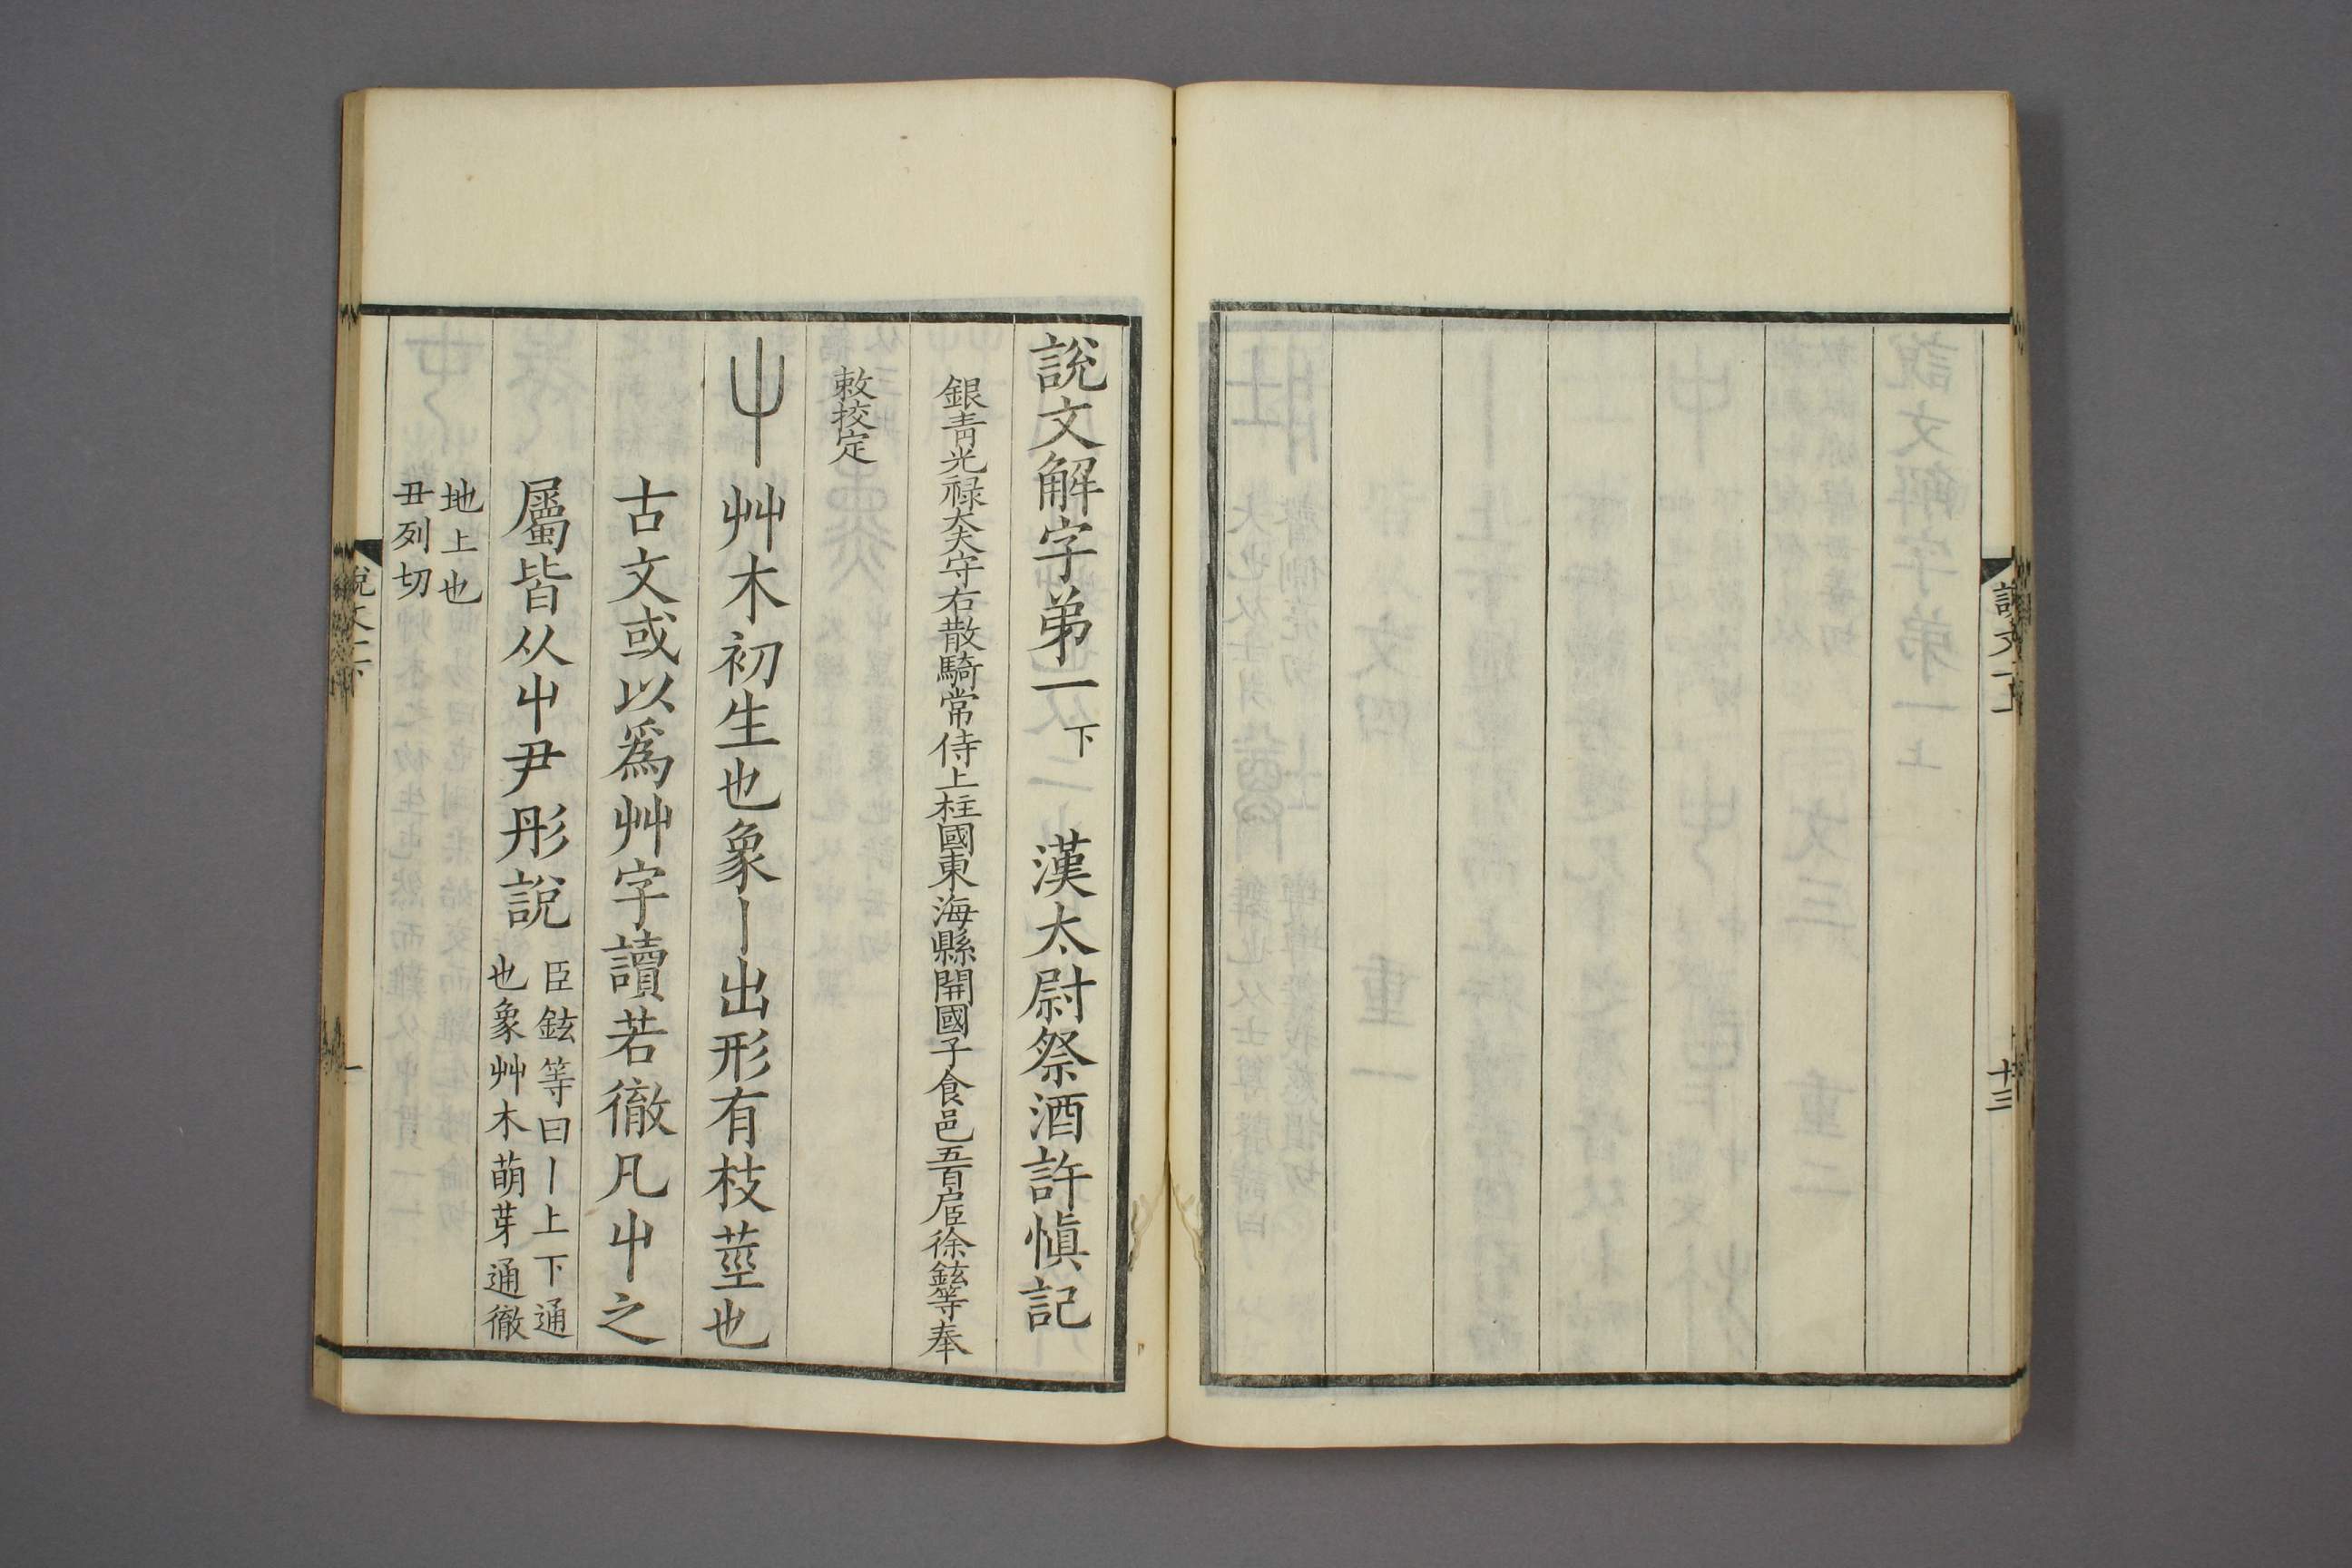 說文一上
十三
說文解字弟一下 漢太尉祭酒許慎記
銀青光禄大夫守右散騎常侍上柱國東海縣開國子食邑五百戶臣徐鉉等奉
敕挍定
屮 艸木初生也象丨出形有枝莖也
古文或以爲艸字讀若徹凡屮之
屬皆从屮尹彤說 臣鉉等曰丨上下通
也象艸木萌芽通徹
地上也
丑列切
說文一下
一